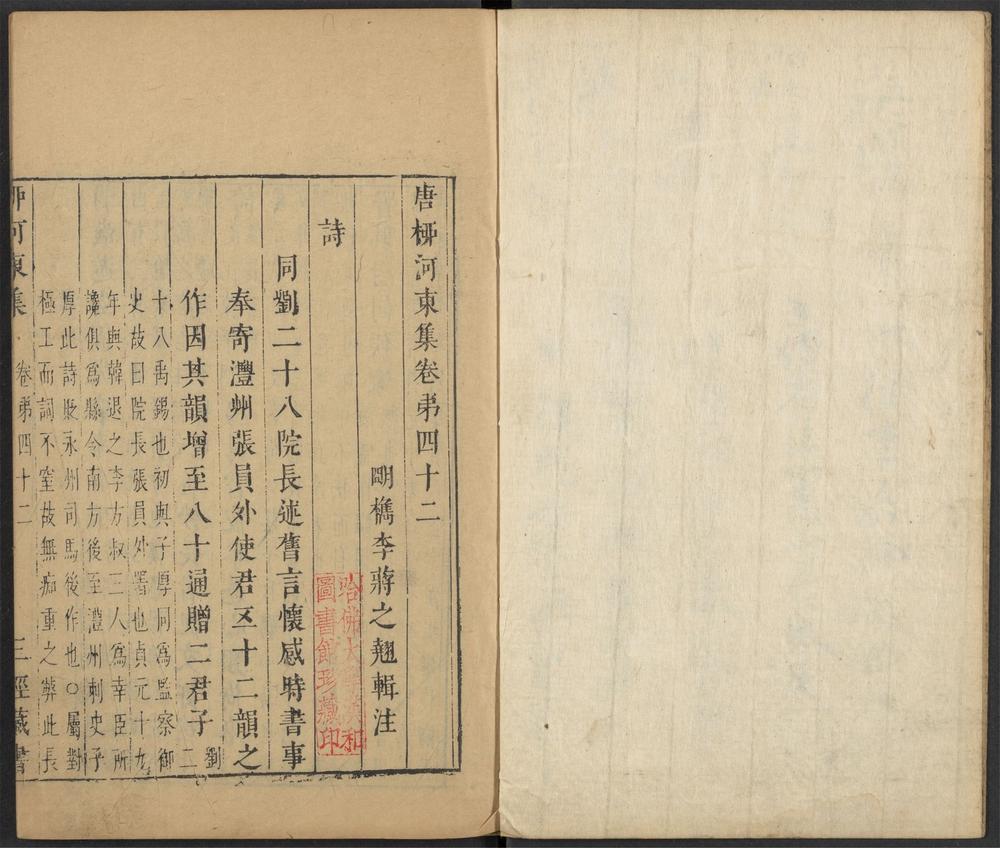 唐桺河東集卷弟四十二
明檇李蔣之翹輯注
詩
同劉二十八院長述舊言懷感時書事
奉寄灃州張員外使君五十二韻之
作因其韻增至八十通贈二君子
劉二
十八禹錫也初與子厚同爲監察御
史故曰院長張員外署也貞元十九
年與韓退之李方叔三人爲幸臣所
讒俱爲縣令南方後至灃州刺史子
厚此詩貶永州司馬後作也○屬對
極工而詞不窒故無痴重之弊此長
桺河東集
卷弟四十二
三徑藏書
哈佛大學漢和
圖書館珍藏印